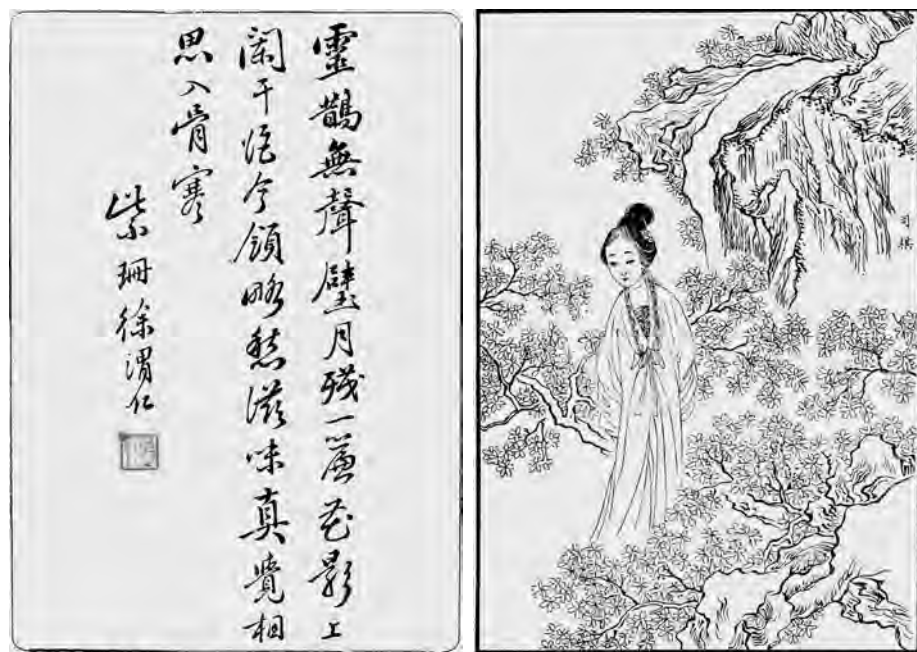 靈鵲無聲璧月殘一簾花影上
闌干從今領略愁滋味真覺相
思入骨寒
紫珊徐渭仁